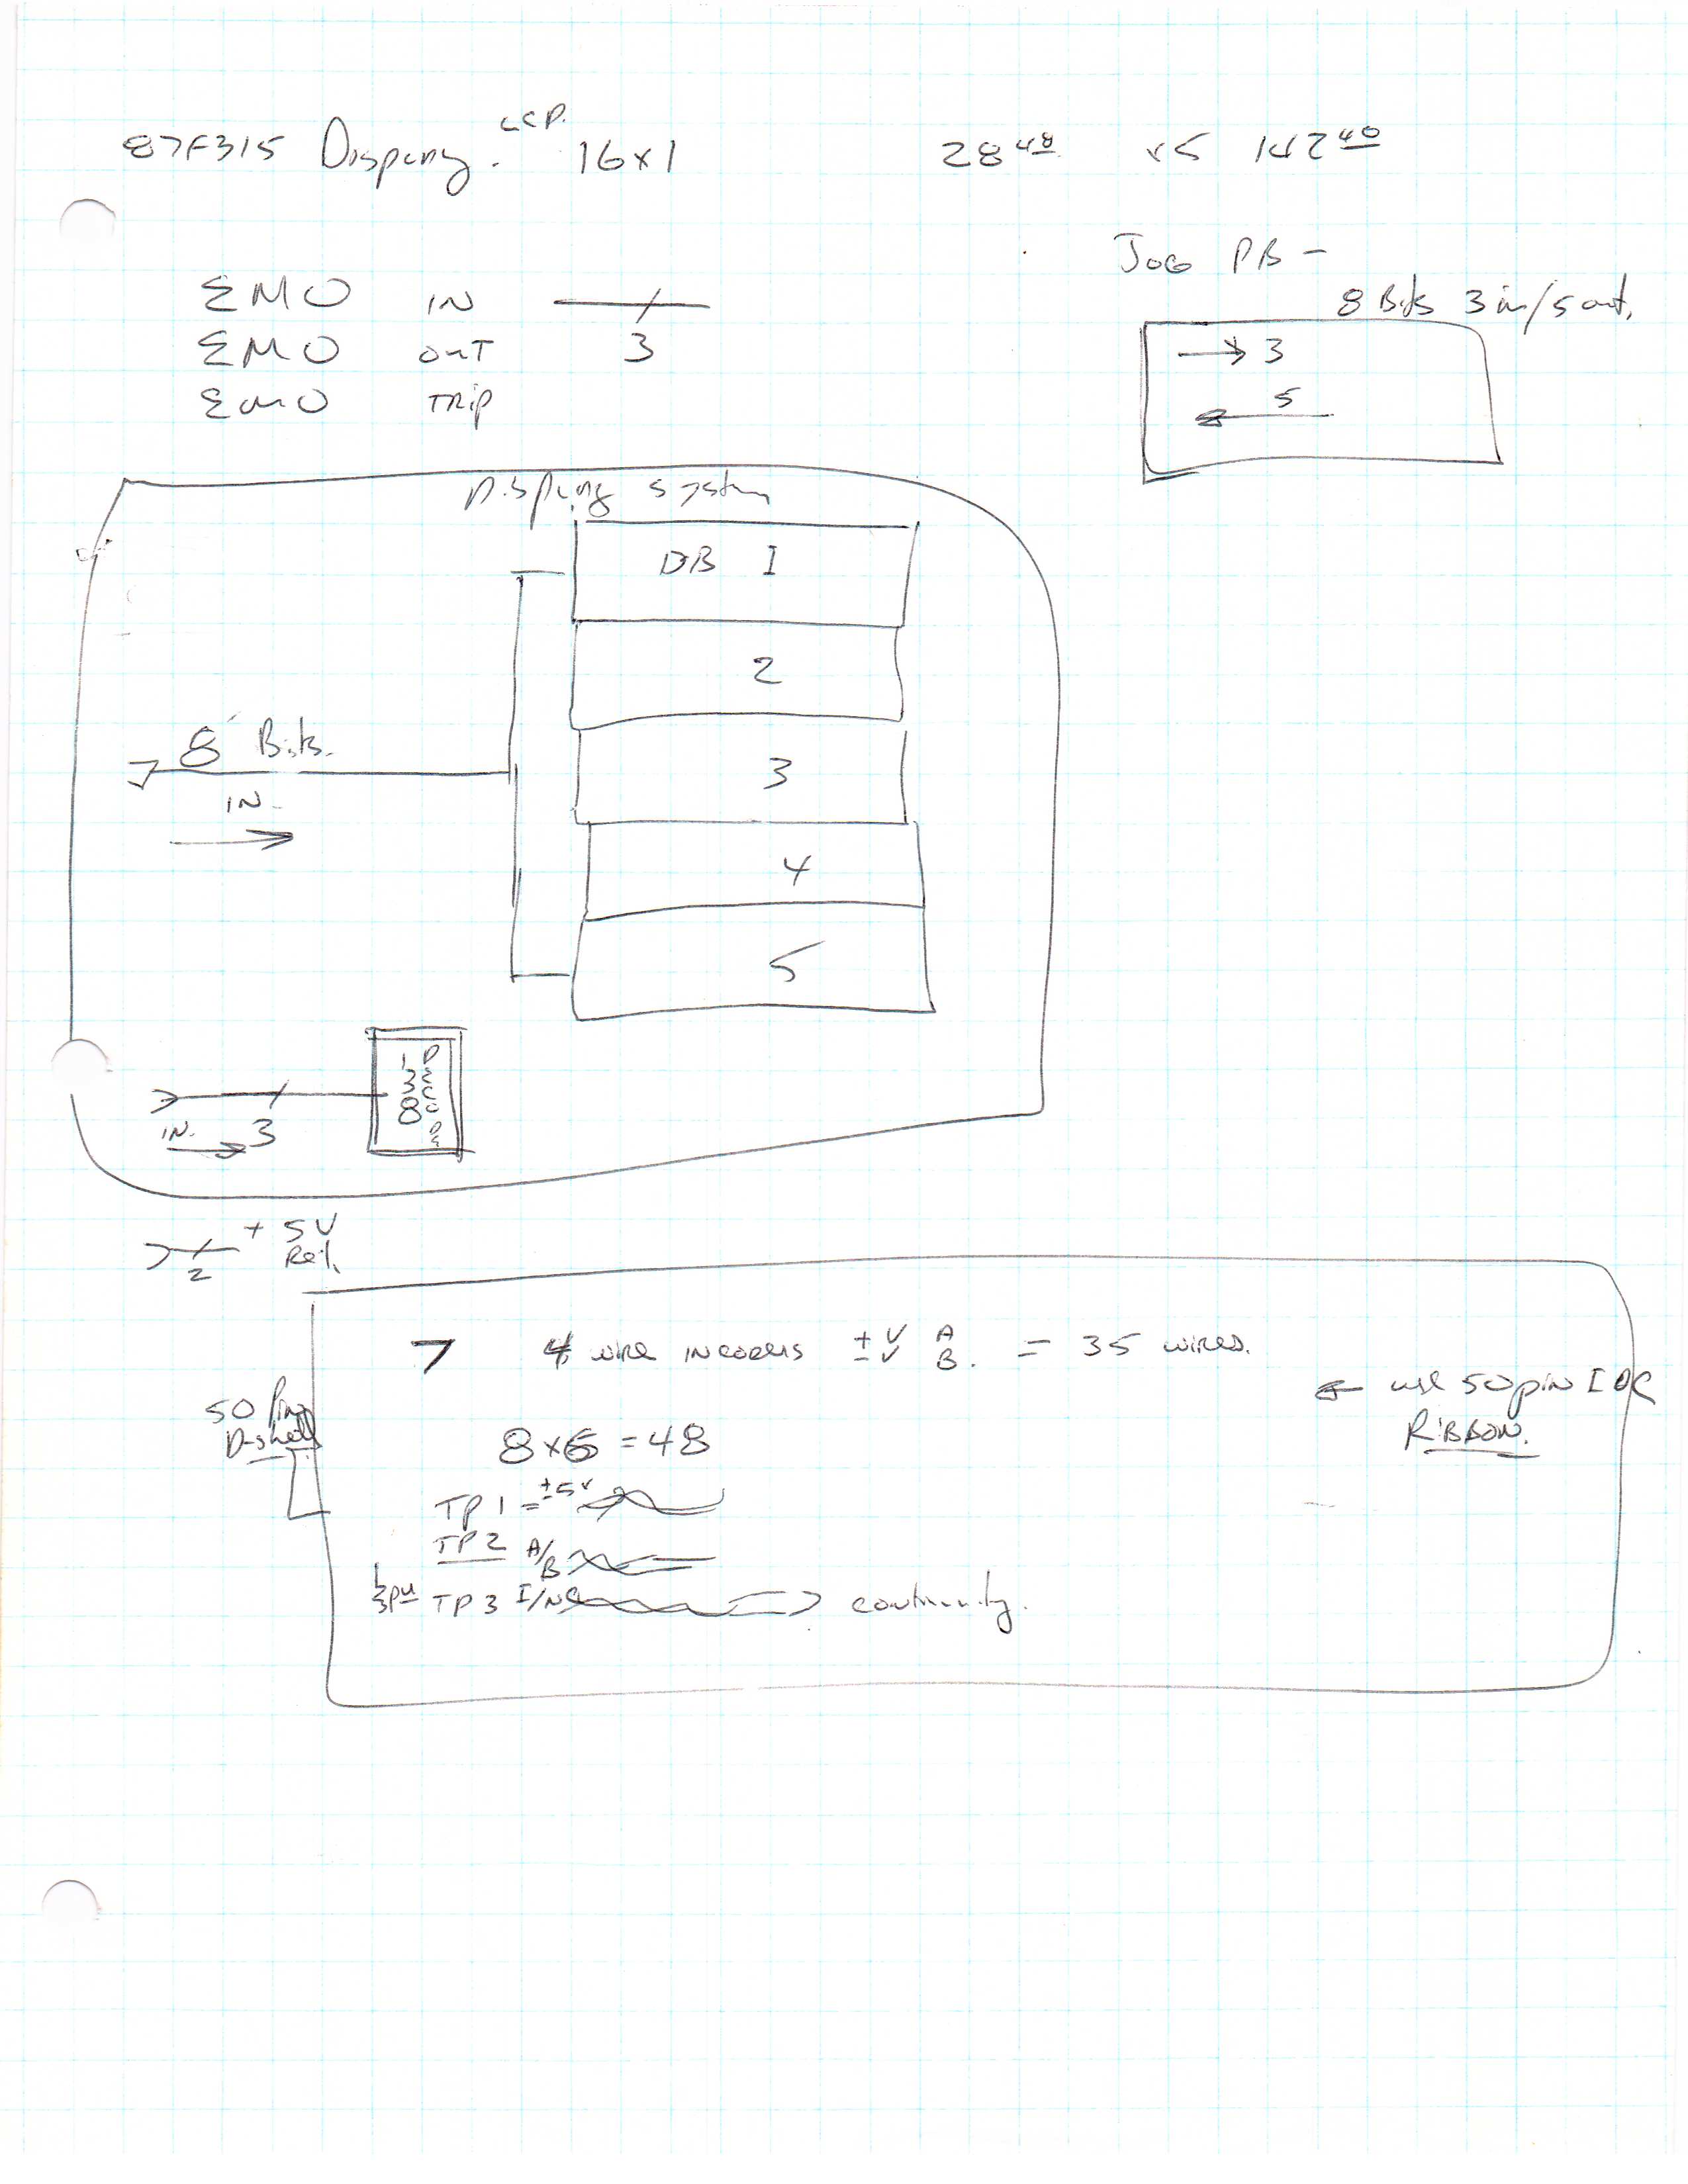 87F315 Dispany. LCD. 16x1 28 48 x5 142 40
Jog PB –
8 Bits 3 in/5 out.
EMO IN
EMO OUT 3
EMO TRIP
→ 3
← 5
Dispany System
DB 1
2
3
4
5
8 Bits.
IN
1
3
8
D
E
C
O
D
E
IN. 3
+ 5V
Ret.
2
7 4 wire incoders ±V A B. = 35 wires.
← use 50 pin IDC
RIBBON.
50 Pin
D-shell
8x6 = 48
TP 1 = ±5V
TP 2 A/B
TP 3 I/NC continuity.